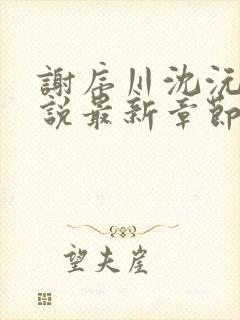 謝辰川沈沅
說最新章節
望夫崖